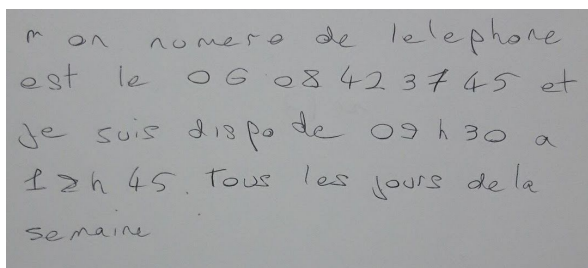 m on numero de telephone
est le 06 08 42 37 45 et
je suis dispo de 09 h 30 a
12h 45. Tous les jours de la
semaine